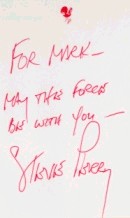 FOR MARK—
MAY THE FORCE
BE WITH YOU—
STEVE PERRY